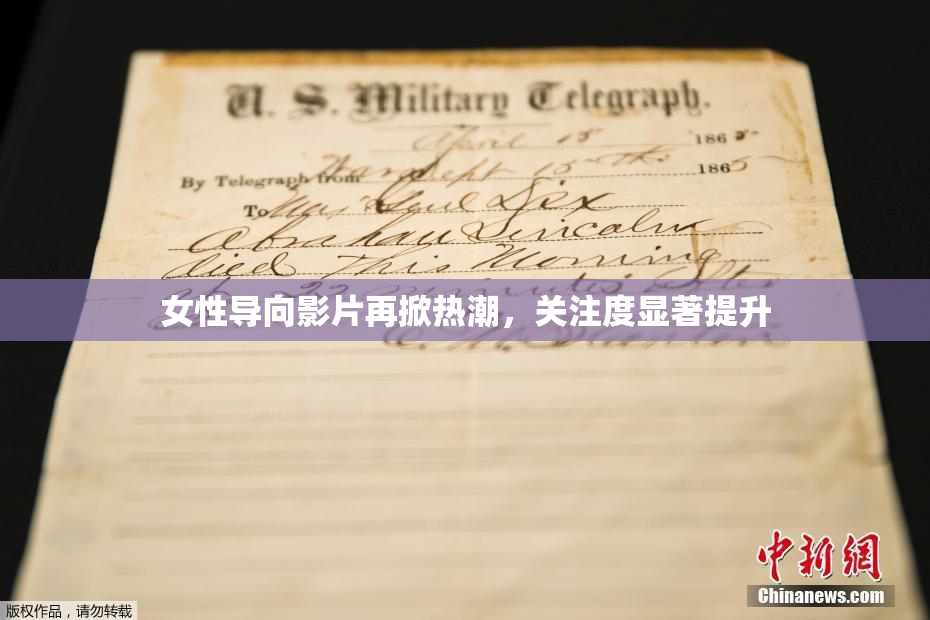 U. S. Military Telegraph.
April 15 1865
By Telegraph from War Dept 15th 1865
To Maj Genl Dix
Abraham Lincoln
died This Morning
at 22 minutes after
女性导向影片再掀热潮，关注度显著提升
E. M. Stanton
中新网
Chinanews.com
版权作品，请勿转载